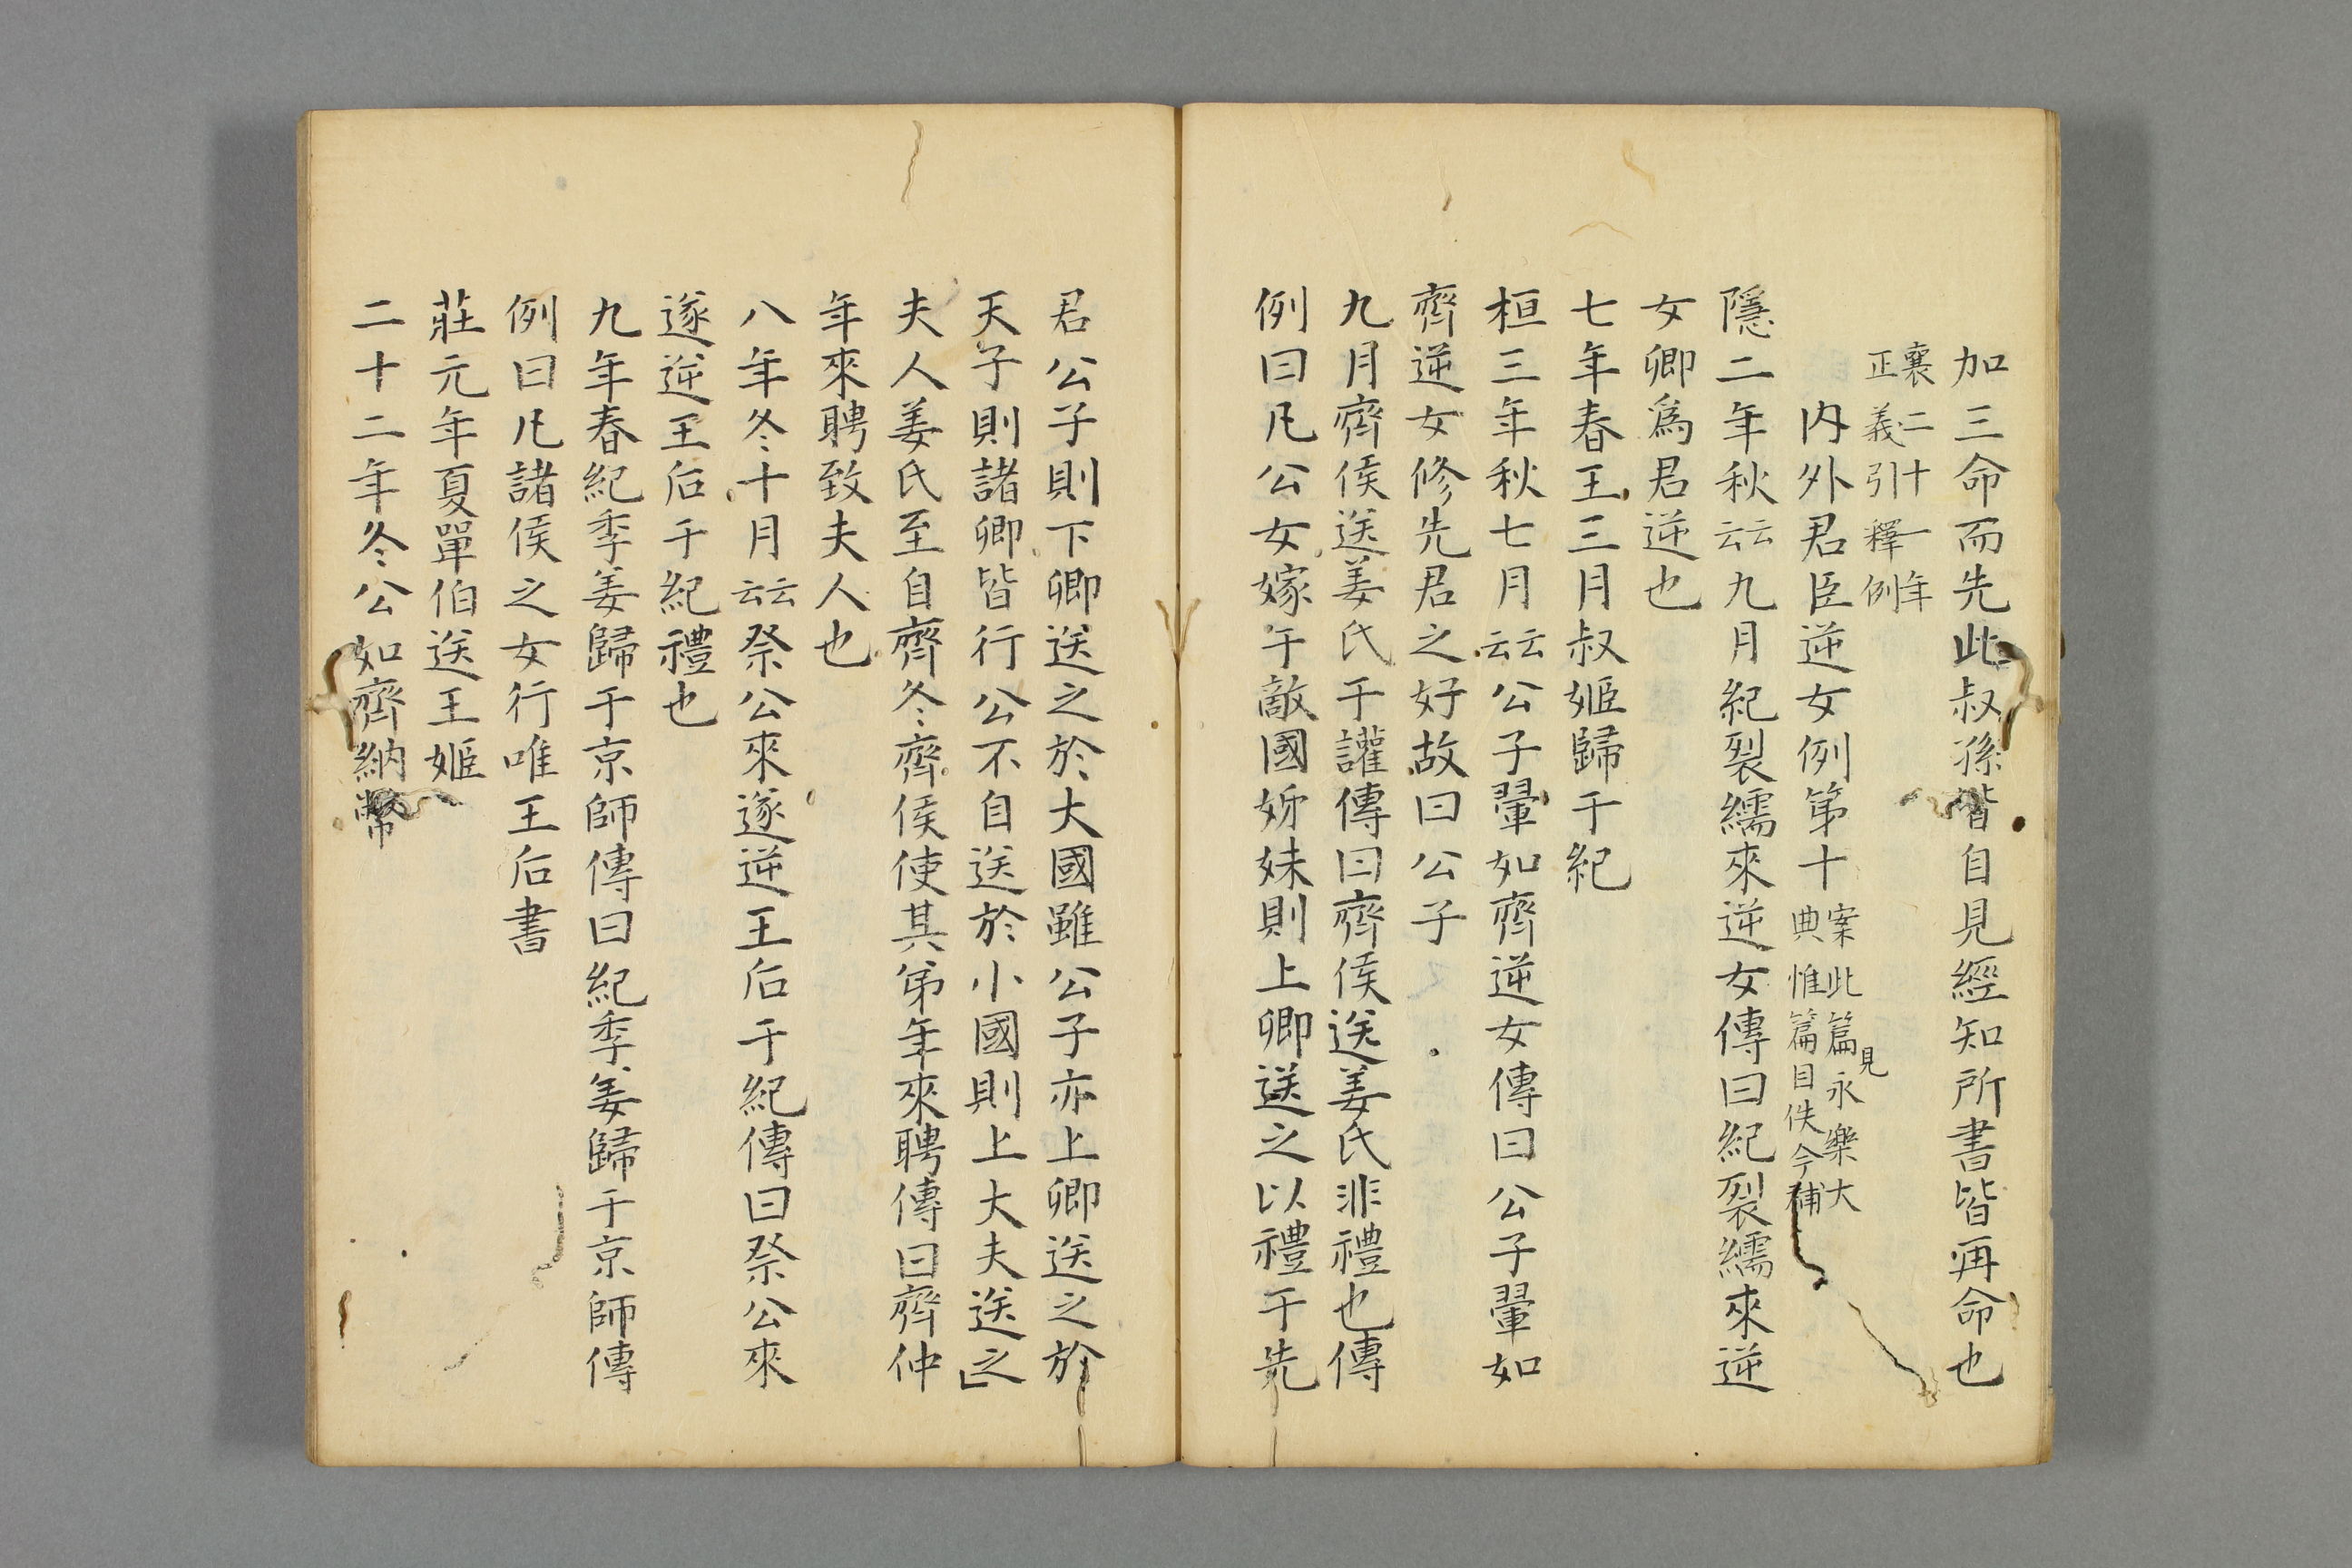 加三命而先此叔孫皆自見經知所書皆再命也
襄二十一年
正義引釋例
內外君臣逆女例第十
案此篇見永樂大
典惟篇目佚今補
隱二年秋云云九月紀裂繻來逆女傳曰紀裂繻來逆
女卿爲君逆也
七年春王三月叔姬歸于紀
桓三年秋七月云云公子翬如齊逆女傳曰公子翬如
齊逆女修先君之好故曰公子
九月齊侯送姜氏于讙傳曰齊侯送姜氏非禮也傳
例曰凡公女嫁于敵國姊妹則上卿送之以禮于先
君公子則下卿送之於大國雖公子亦上卿送之於
天子則諸卿皆行公不自送於小國則上大夫送之
夫人姜氏至自齊冬齊侯使其弟年來聘傳曰齊仲
年來聘致夫人也
八年冬十月云云祭公來遂逆王后于紀傳曰祭公來
遂逆王后于紀禮也
九年春紀季姜歸于京師傳曰紀季姜歸于京師傳
例曰凡諸侯之女行唯王后書
莊元年夏單伯送王姬
二十二年冬公如齊納幣